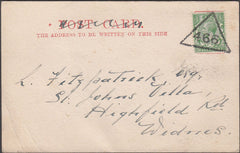 POST CARD
THE ADDRESS TO BE WRITTEN ON THIS SIDE
466
L. Fitzpatrick Esq.
St. Johns Villa,
Highfield Rd
Widnes.